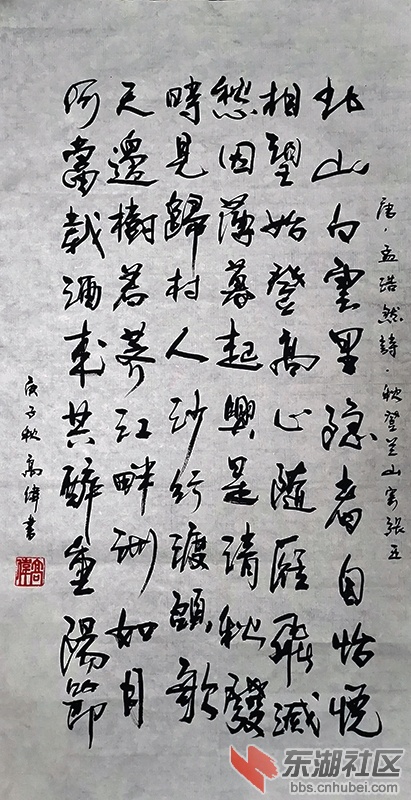 唐·孟浩然詩·秋登兰山寄張五
北山白雲里隐者自怡悦
相望始登高心隨雁飛滅
愁因薄暮起興是清秋發
時見歸村人沙行渡頭歇
天邊樹若薺江畔洲如月
何當載酒来共醉重陽節
庚子秋高偉書
高偉
东湖社区
bbs.cnhubei.com